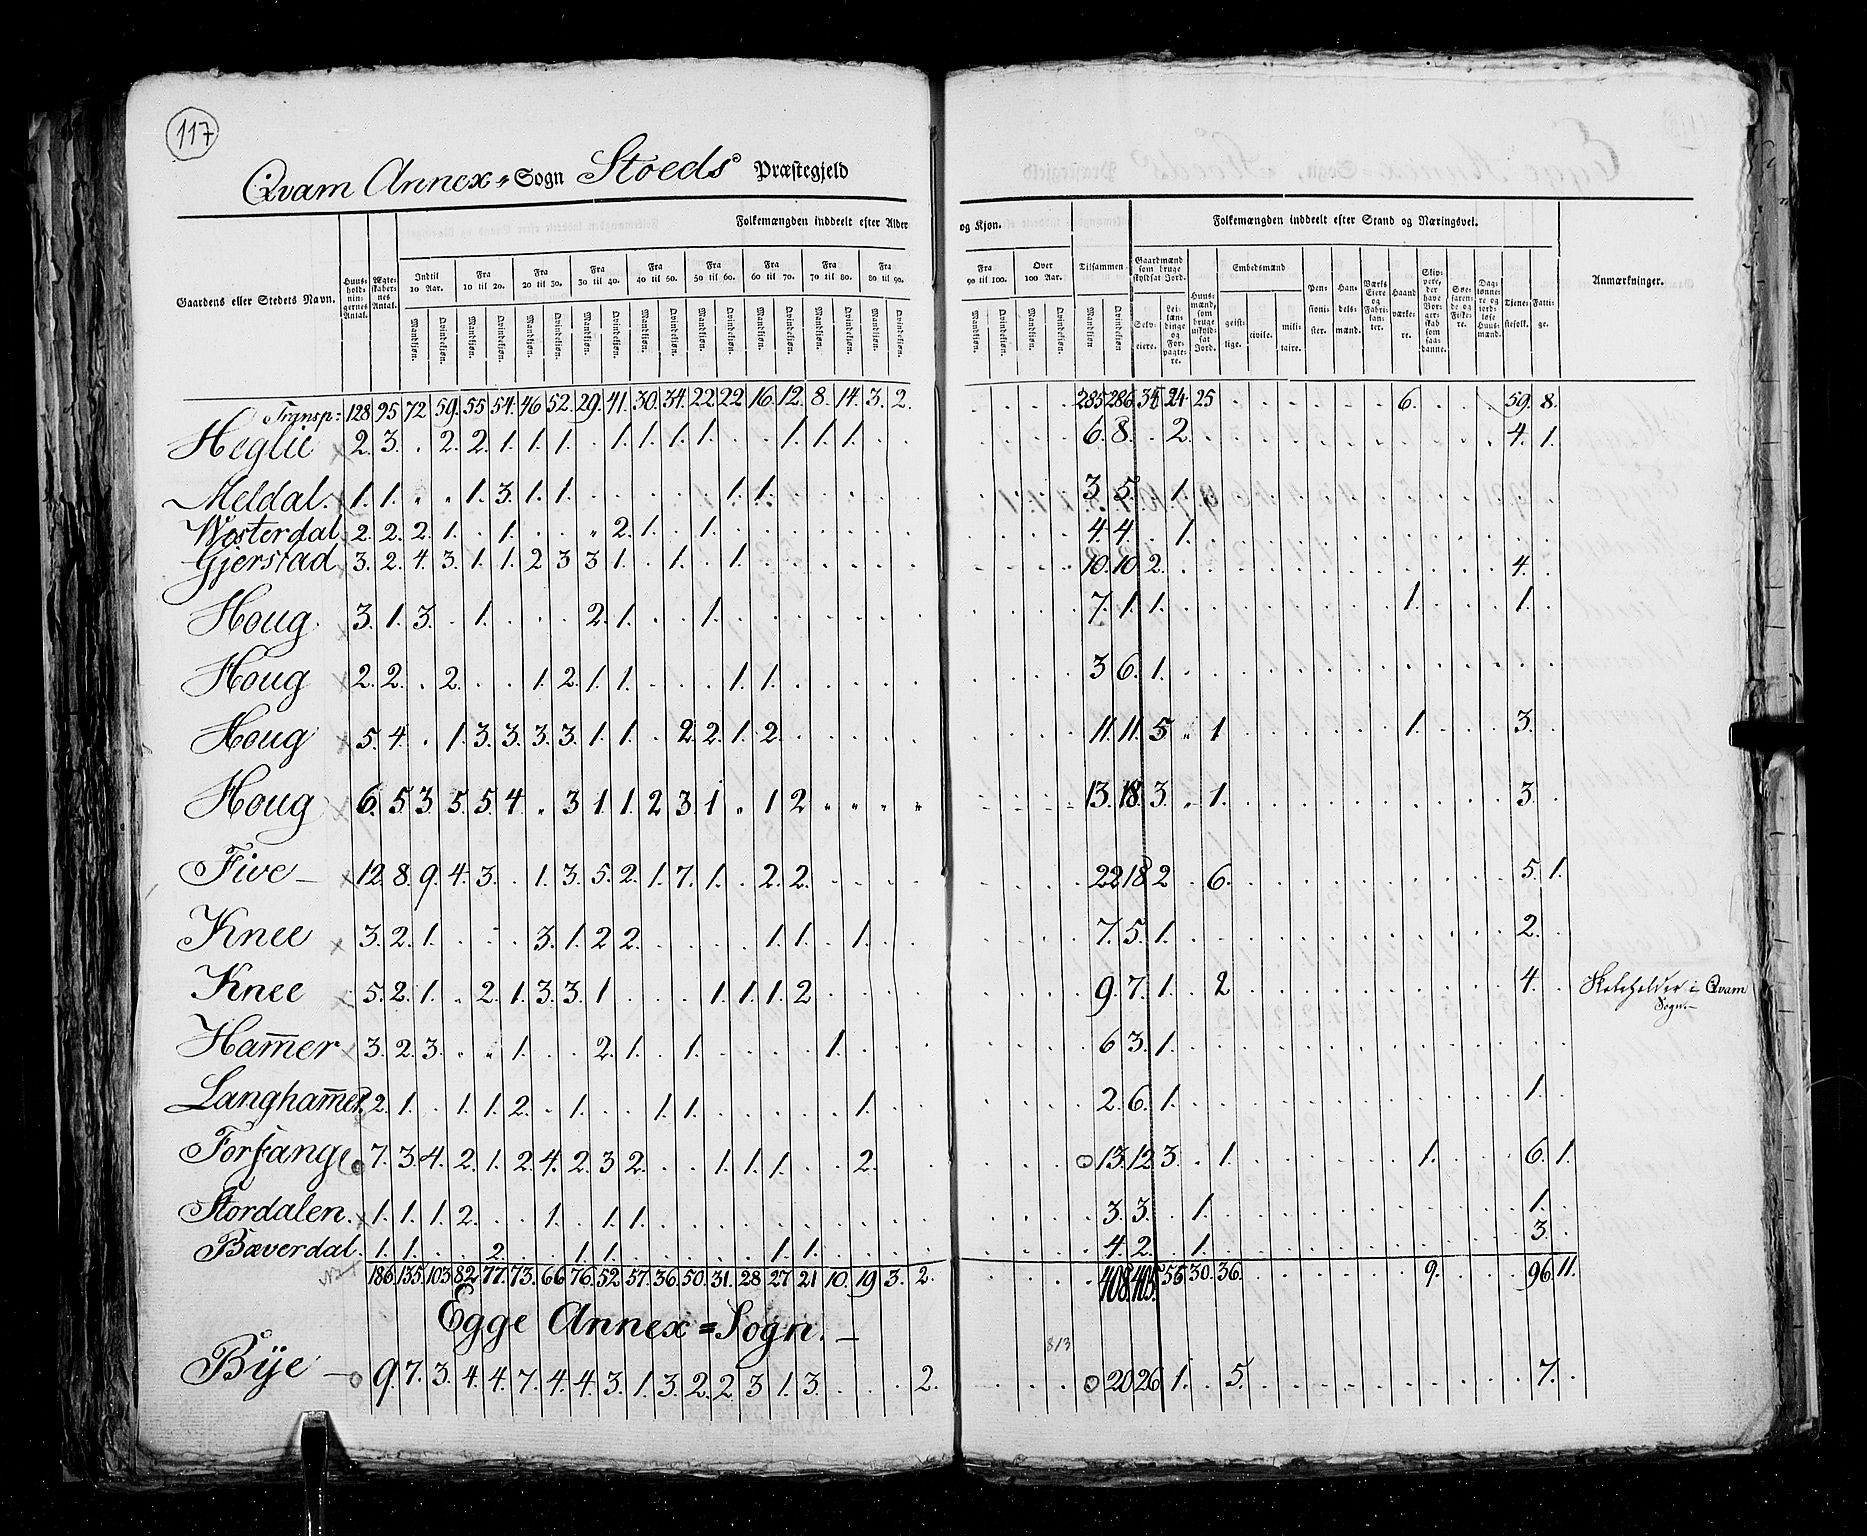 117
Qvam Annex-Sogn Stoeds Præstegjeld
Gaardens eller Stedets Navn. Huus-holdnin-gernes Antal. Ægte-skaber-nes Antal. Folkemængden inddeelt efter Alder og Kjøn. Tilsammen Folkemængden inddeelt efter Stand og Næringsvei. Anmærkninger.
Indtil 10 Aar. Fra 10 til 20. Fra 20 til 30. Fra 30 til 40. Fra 40 til 50. Fra 50 til 60. Fra 60 til 70. Fra 70 til 80. Fra 80 til 90. Fra 90 til 100. Over 100 Aar. Gaardmænd som bruge skyldsat Jord. Huus-mænd, som bruge uskyld-sat Jord. Embedsmænd Pen-sioni-ster. Han-dels-mænd. Værks Eiere og Fabri-kan-ter. Haand-værke-re. Skip-pere, der have Bor-ger-skab som saa-danne. Søe-farende og Fiske-re. Dag-lønne-re og jord-løse Huus-mænd. Tjene-stefolk. Fatti-ge.
Mandkjøn. Qvindekjøn. Mandkjøn. Qvindekjøn. Mandkjøn. Qvindekjøn. Mandkjøn. Qvindekjøn. Mandkjøn. Qvindekjøn. Mandkjøn. Qvindekjøn. Mandkjøn. Qvindekjøn. Mandkjøn. Qvindekjøn. Mandkjøn. Qvindekjøn. Mandkjøn. Qvindekjøn. Mandkjøn. Qvindekjøn. Mandkjøn. Qvindekjøn. Selv-eiere. Lei-læn-dinge og For-pagte-re. geist-lige. civile. mili-taire.
Transp: 128 95 72 59. 55 54. 46 52. 29. 41. 30. 34. 22 22 16. 12. 8. 14. 3. 2. 285 286 35 24 25 6. 59. 8.
Heglie 2. 3. . 2. 2. 1. 1. 1. . 1. 1. 1. 1. . . 1. 1. 1. . . 6. 8. . 2. 4. 1.
Meldal. 1. 1. . . 1. 3. 1. 1. . . . . . 1. 1. 3 5. . 1.
Westerdal 2. 2. 2. 1. . 1. . . . 2. 1. . 1. 4. 4. . 1.
Gjerstad 3. 2. 4. 3. 1. 1. 2 3 3 1. . 1. . 1. 10. 10. 2. 4.
Houg. 3. 1. 3. . 1. . . . 2. 1. . . 1. 7. 1. 1. 1. 1.
Houg 2. 2. . 2. . . 1. 2. 1. 1. . . . 1. 1. 3 6. 1.
Houg 5. 4. . 1. 3. 3. 3. 3. 1. 1. . 2. 2. 1. 2. 11. 11. 5 . 1 1. 3.
Houg 6. 5 3. 5. 5 4. . 3 1 1. 2 3. 1. . 1. 2 13. 18. 3. . 1. 3.
Five 12. 8. 9. 4. 3. . 1. 3. 5. 2. 1. 7. 1. . 2. 2. 22 18 2 . 6. 5. 1.
Knee 3. 2. 1. . . . 3. 1. 2 2. . . . . 1. 1. . 1. 7. 5. 1. 2.
Knee 5. 2. 1. . 2. 1. 3. 3. 1 . . . 1. 1. 1. 2 9. 7. 1. . 2 4. i Qvam
Sogn.
Ham̅er 3. 2. 3. . . 1. . . 2. 1. . 1. . . . . 1. 6 3. 1.
Langham̅er 2. 1. . 1. 1. 2. . 1. . . 1. 1. . . . . . 1. 2. 6. 1. 1.
Forfang 7. 3. 4. 2. 1. 2. 4. 2. 3 2. . . 1. 1. 1. . . 2. 13. 12. 3. . 1. 1. 6. 1.
Stordalen. 1. 1. 1. 2. . . 1. . 1. 1. 3. 3. . 1. 1.
Bæverdal. 1. 1. . . 2. . . 1. 1. . . . . . 1. 1. 4. 2. . 1. 3.
186. 135. 103 82 77. 73. 66 76. 52. 57. 36. 50. 31. 28 27 21 10. 19 3. 2. 408 405 56 30. 36. 9. 96. 11.
Egge Annex=Sogn.
813
Bÿe 9. 7. 3. 4. 4. 7. 4. 4. 3. 1. 3. 2. 2. 3 1. 3. . . . 2. 20 26 1. . 5. 7.